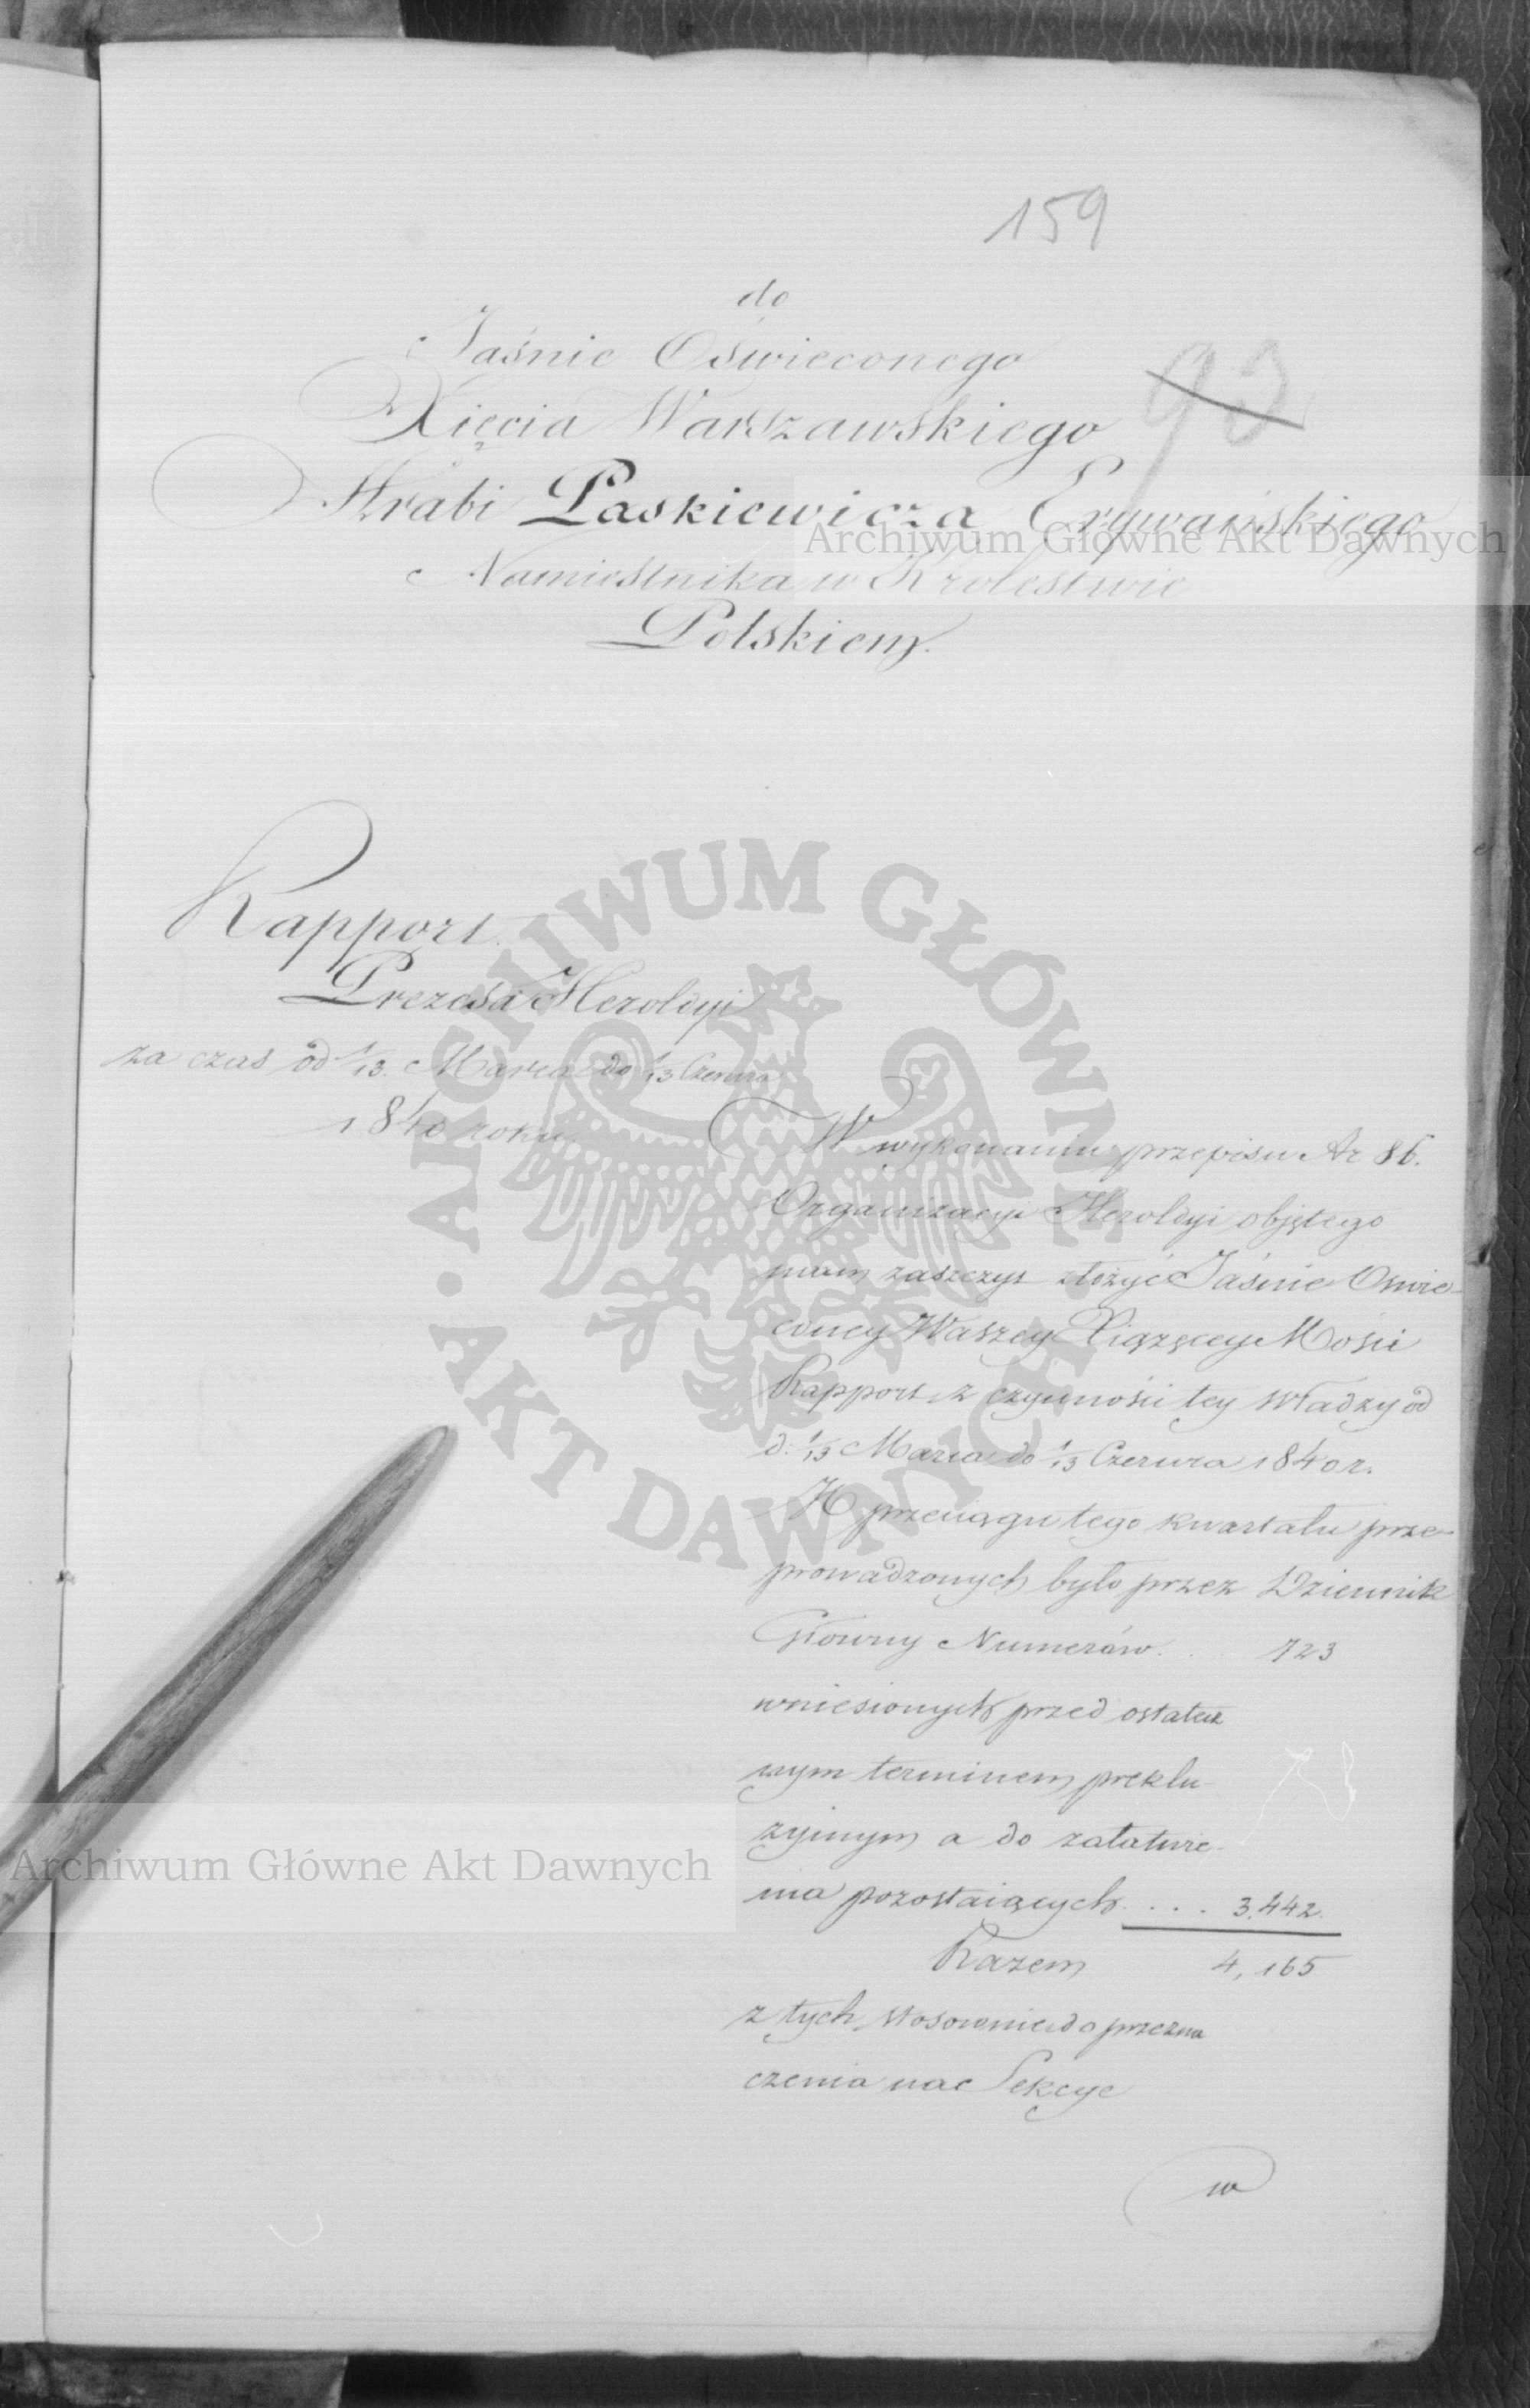 159
do
Jaśnie Oświeconego
93
Xięcia Warszawskiego
Hrabi Paskiewicza Erywańskiego
Archiwum Główne Akt Dawnych
Namiestnika w Krolestwie
Polskiem.
Rapport
Prezesa Heroldyi
za czas od 1/13. Marca do 1/13 Czerwca
1840 roku.
W wykonaniu przepisu Ar 86.
Organizacyi Heroldyi objętego
mam zaszczyt złożyć Jaśnie Oswie-
coney Waszey Xiążęcey Mości
Rapport z czynności tey Władzy od
d: 1/13 Marca do 1/13 Czerwca 1840 r.
W przeciągu tego kwartału prze-
prowadzonych było przez Dziennik
Główny Numerów . . 723
wniesionych przed ostatecz
nym terminem preklu-
zyinym a do załatwie-
nia pozostaiących . . . . 3,442.
Razem 4,165
z tych stosownie do przezna
czenia na Sekcye
w
ARCHIWUM GŁÓWNE • AKT DAWNYCH •
Archiwum Główne Akt Dawnych